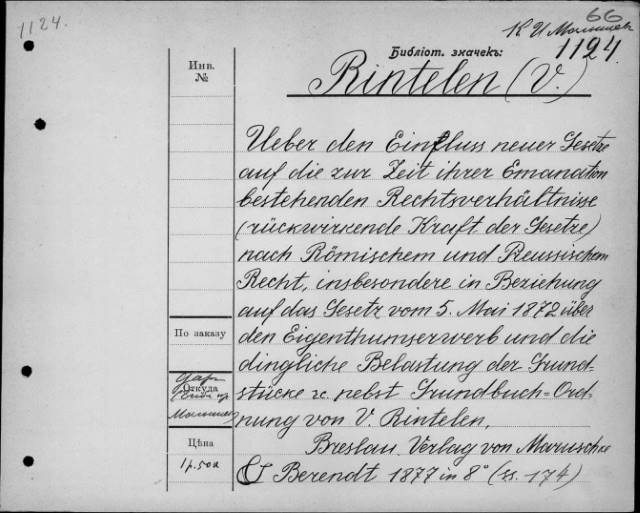 1124.
66
К И Малышев
1124.
Библіот. значекъ:
Rintelen (V.)
Инв.
№
Ueber den Einfluss neuer Gesetze
auf die zur Zeit ihrer Emanation
bestehenden Rechtsverhältnisse
(rückwirkende Kraft der Gesetze)
nach Römischem und Preussischem
Recht, insbesondere in Beziehung
auf das Gesetz vom 5. Mai 1872 über
den Eigenthumserwerb und die
dingliche Belastung der Grund-
stücke &c. nebst Grundbuch-Ord-
nung von V. Rintelen.
Breslau. Verlag von Maruschke
& Berendt 1877 in 8° (s. 174)
По заказу
Откуда
Цѣна
1р.50к